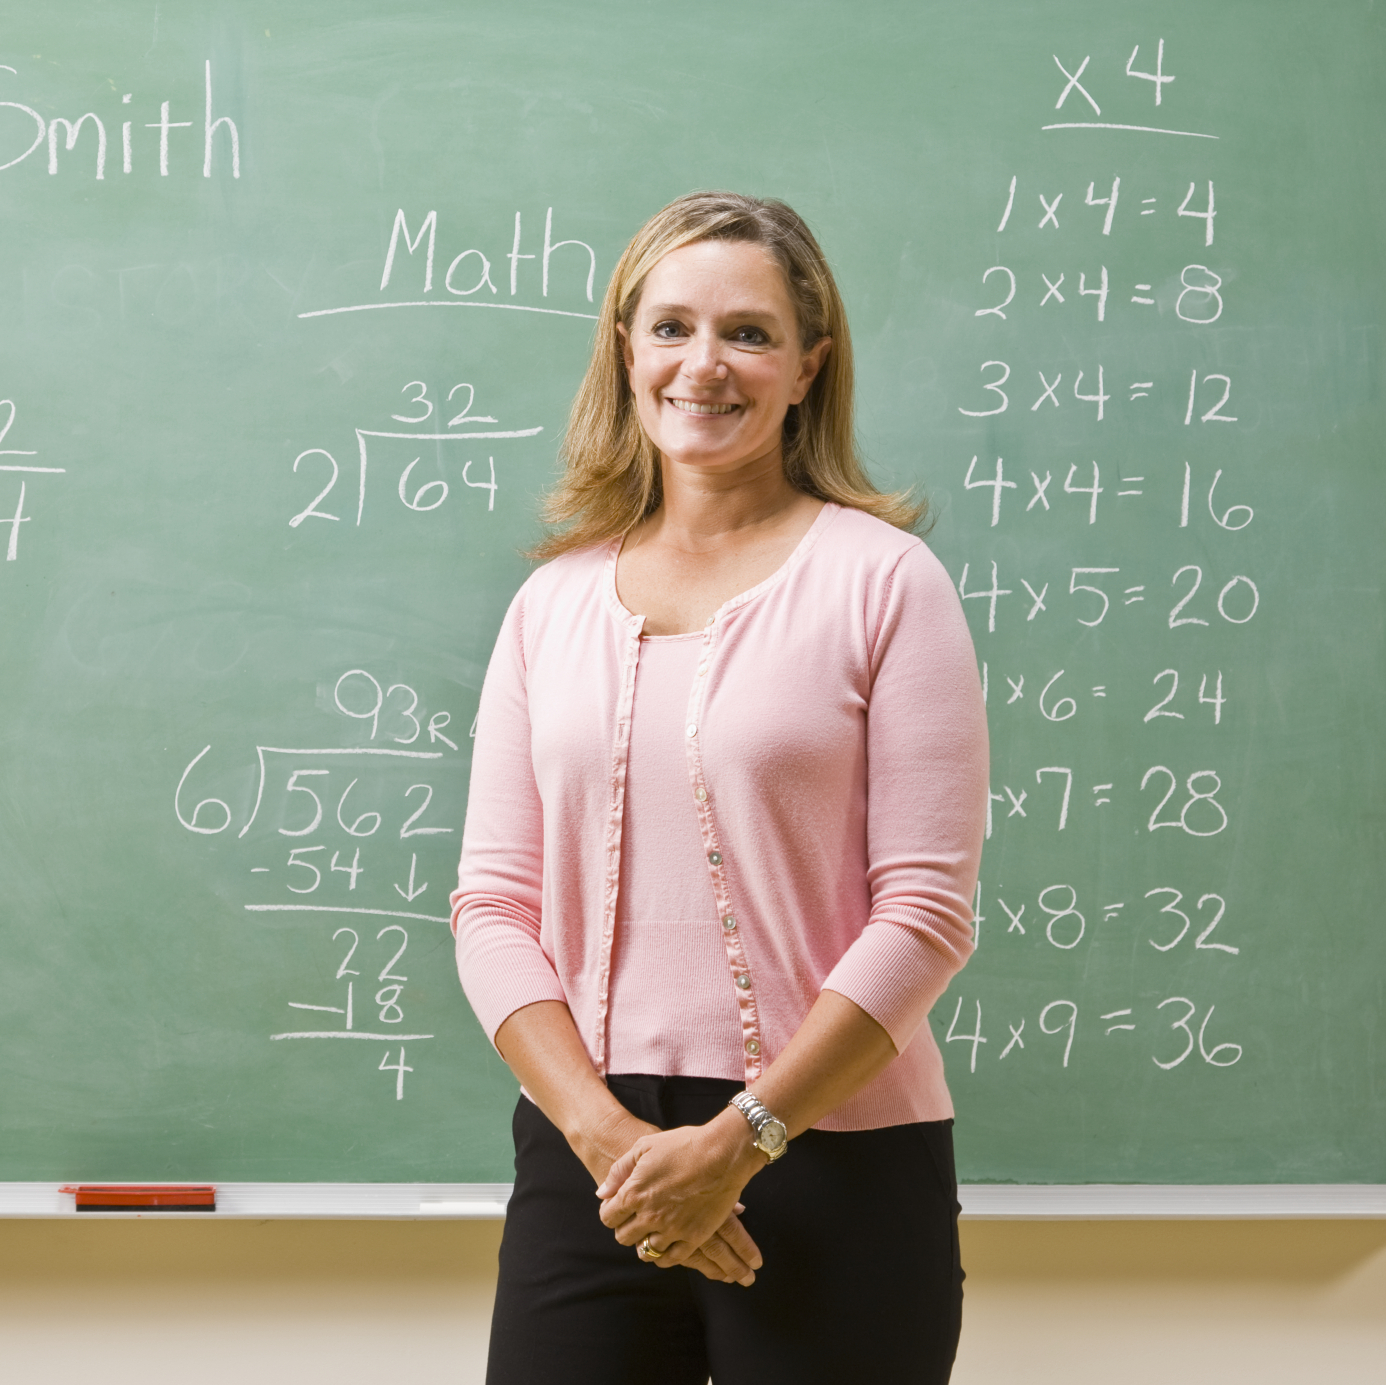 Smith
Math
32
2)64
93 R
6)562
-54↓
22
-18
4
x 4
1 x 4 = 4
2 x 4 = 8
3 x 4 = 12
4 x 4 = 16
4 x 5 = 20
x 6 = 24
x 7 = 28
x 8 = 32
4 x 9 = 36